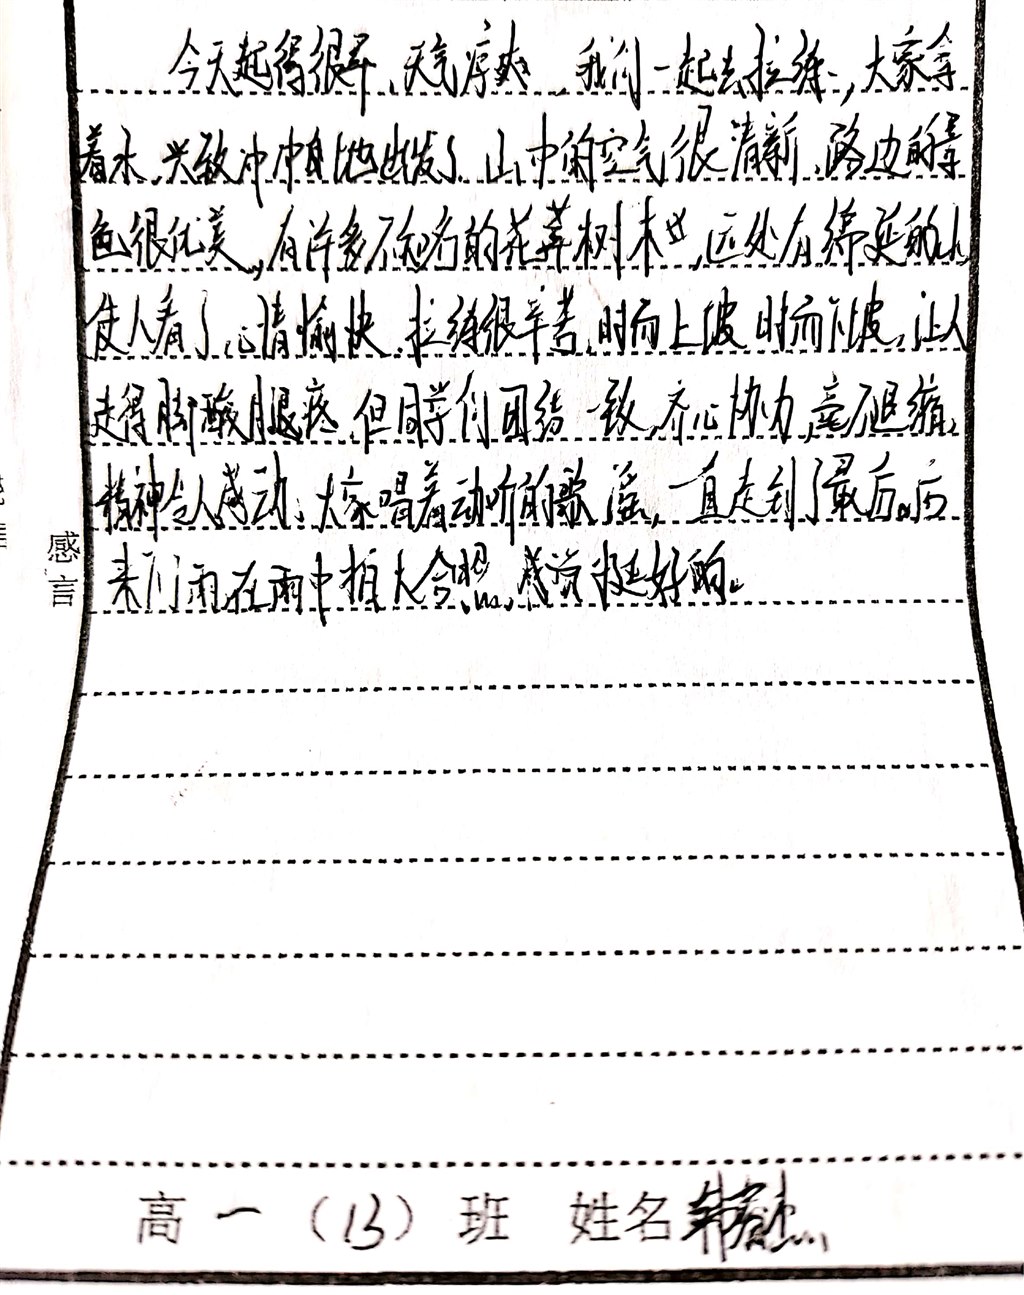 今天起得很早,天气凉爽,我们一起去拉练,大家拿
着水,兴致冲冲地出发了,山中的空气很清新,路边的景
色很优美,有许多不知名的花草树木,远处有绵延的山
使人看了心情愉快,拉练很辛苦,时而上坡时而下坡,让人
走得脚酸腿疼,但同学们团结一致,齐心协力,毫不退缩,
精神令人感动,大家唱着动听的歌谣,一直走到了最后。后
来下雨,在雨中拍大合照,感觉挺好的。
感言
高一(13)班 姓名韩